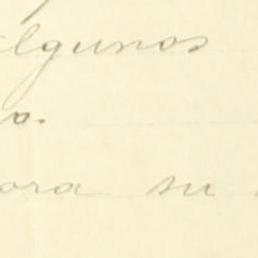 algunos
o.
ora su